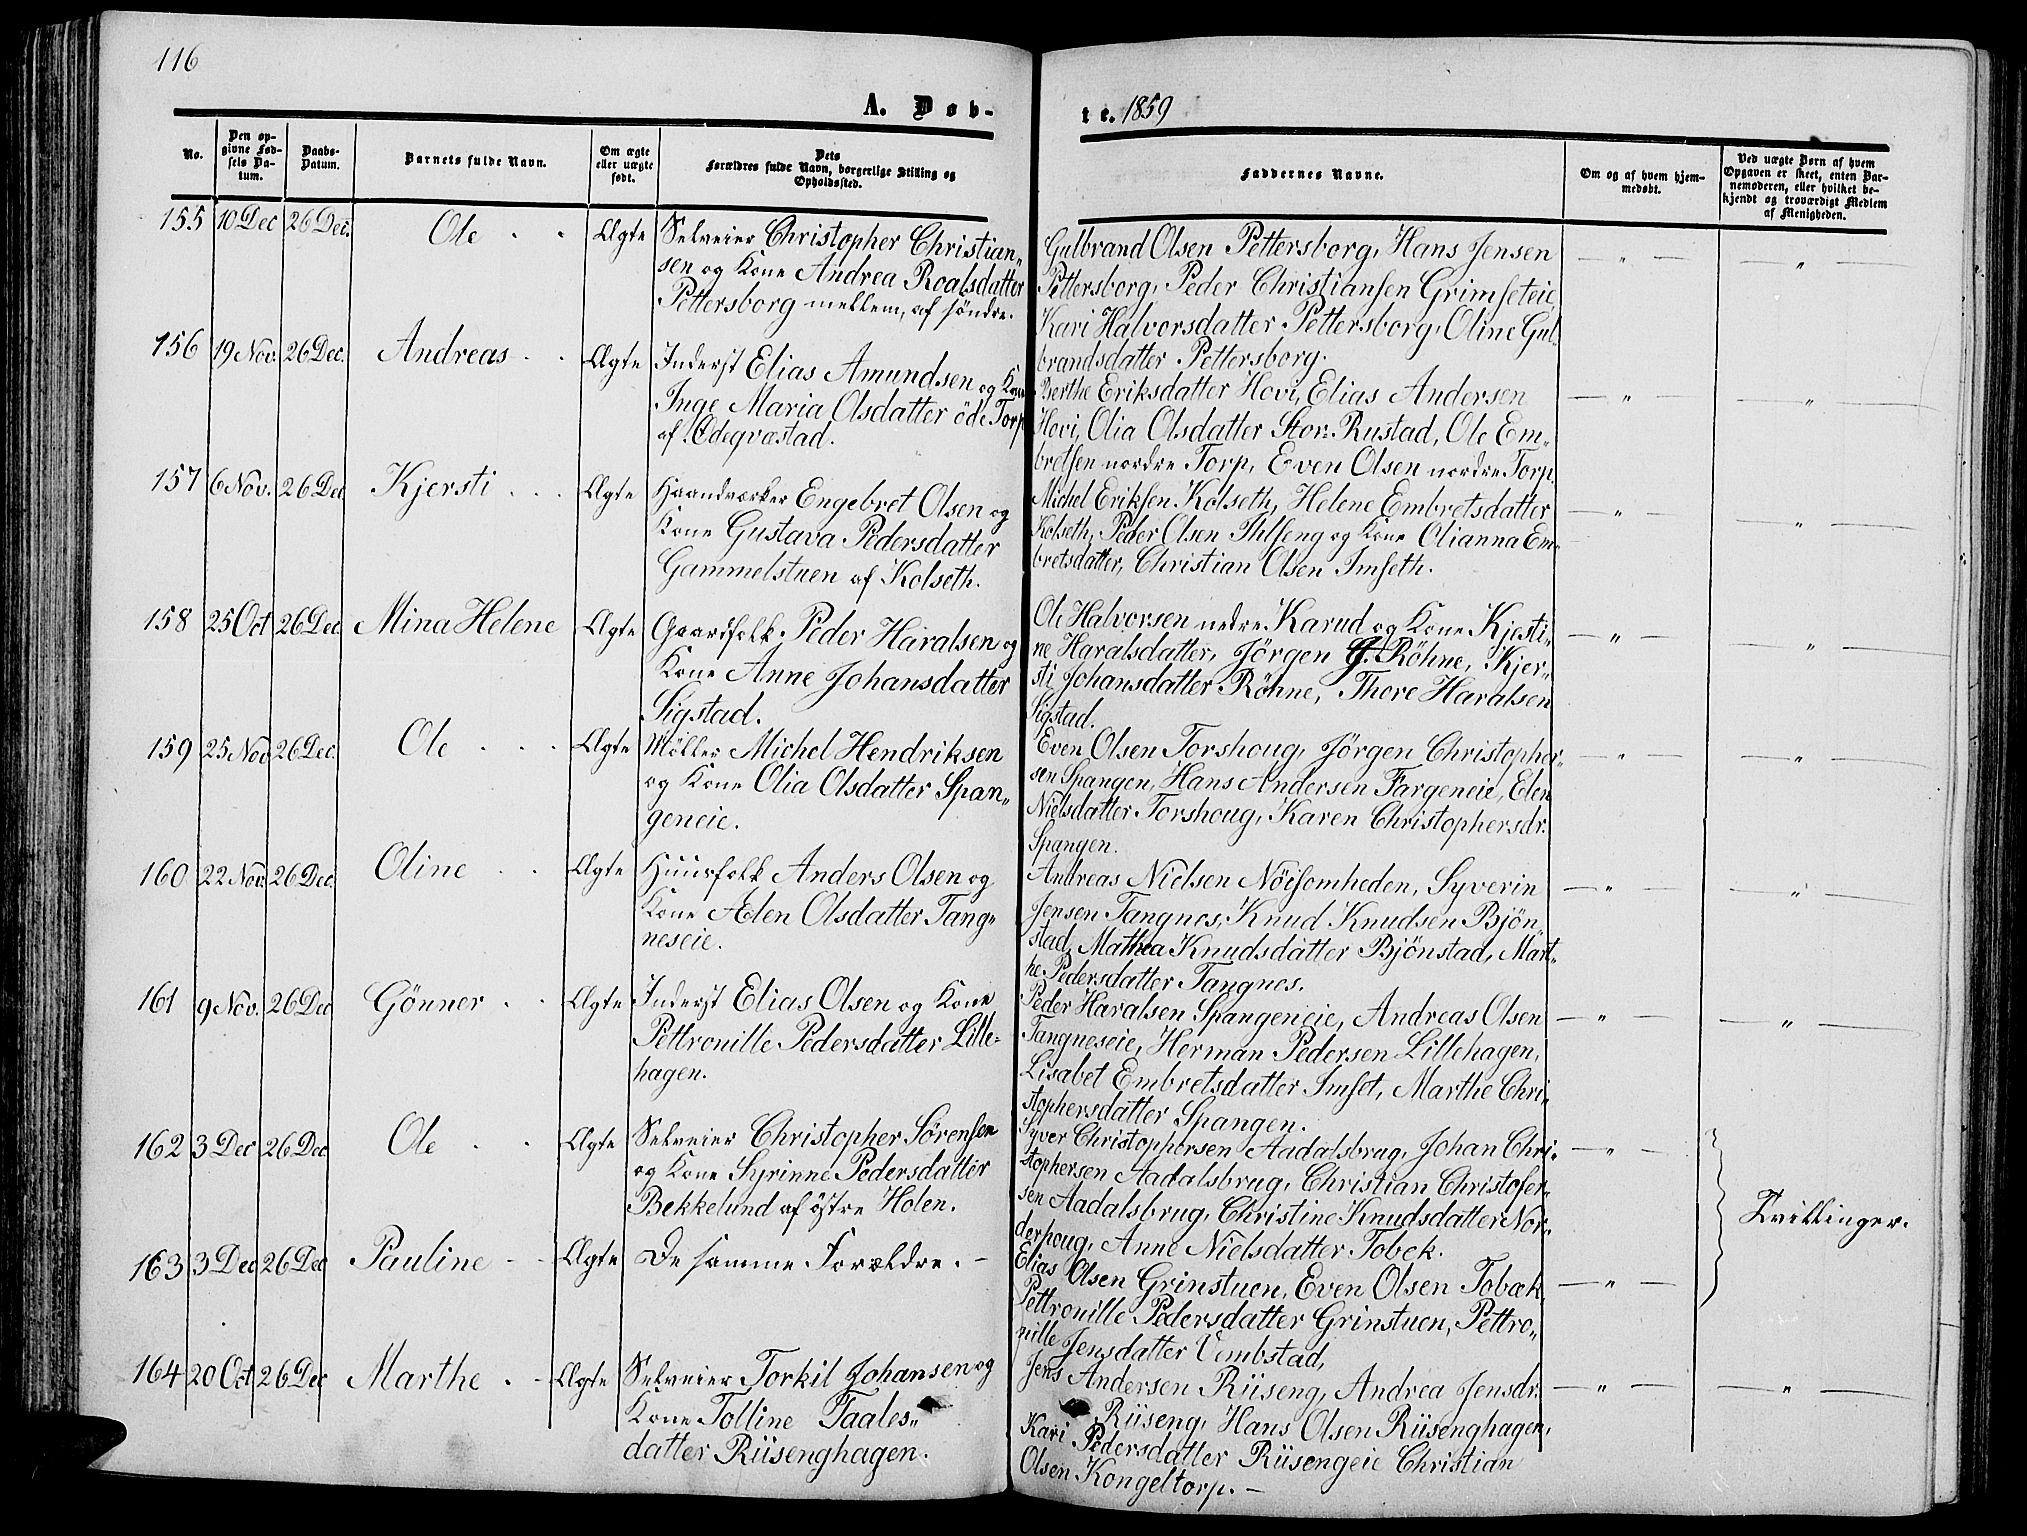 116
A. Døb-
te. 1859
No.
Den op-
givne Fød-
sels Da-
tum.
Daabs-
Datum.
Barnets fulde Navn.
Om ægte
eller uægte
født.
Dets
Forældres fulde Navn, borgerlige Stilling og
Opholdssted.
Faddernes Navne.
Om og af hvem hjem-
medøbt.
Ved uægte Børn af hvem
Opgaven er skeet, enten Bar-
nemoderen, eller hvilket be-
kjendt og troværdigt Medlem
af Menigheden.
155 10 Dec 26 Dec. Ole Ægte Selveier Christopher Christian„
sen og Kone Andrea Roalsdatter
Pettersborg mellem, af söndre.
Gulbrand Olsen Pettersborg, Hans Jensen
Pettersborg, Peder Christiansen Grimseteie
Kari Halvorsdatter Pettersborg, Oline Gul-
brandsdatter Pettersborg.
156 19 Nov. 26 Dec. Andreas Ægte Inderst Elias Amundsen og Kone
Inge Maria Olsdatter öde Torp
af Ödegvæstad.
Berthe Eriksdatter Hovi, Elias Andersen
Hovi, Olia Olsdatter Stor-Rustad, Ole Em„
bretsen nordre Torp, Even Olsen nordre Torp.
157 6 Nov. 26 Dec. Kjersti Ægte Haandværker Engebret Olsen og
Kone Gustava Pedersdatter
Gammelstuen af Kolseth.
Michel Eriksen Kolseth, Helene Embretsdatter
Kolseth, Peder Olsen Ihlseng og Kone Olianna Em„
bretsdatter, Christian Olsen Imseth.
158 25 Oct 26 Dec. Mina Helene Ægte Gaardfolk Peder Haralsen og
Kone Anne Johansdatter
Sigstad.
Ole Halvorsen nedre Karud og Kone Kjesti„
ne Haralsdatter, Jörgen J. Röhne, Kjer„
sti Johansdatter Röhne, Thore Haralsen
Sigstad.
159 25 Nov 26 Dec. Ole Ægte Möller Michel Hendriksen
og Kone Olia Olsdatter Span„
geneie.
Even Olsen Torshoug, Jörgen Christopher„
sen Spangen, Hans Andersen Fargeneie, Elen
Nielsdatter Torshoug, Karen Christophersdr.
Spangen.
160 22 Nov. 26 Dec. Oline Ægte Huusfolk Anders Olsen og
Kone Aelen Olsdatter Tang„
neseie.
Andreas Nielsen Nöisomheden, Syverin
Jensen Tangnes, Knud Knudsen Bjön„
stad, Mathea Knudsdatter Bjönstad, Mart„
he Pedersdatter Tangnes.
161 9 Nov. 26 Dec Gönner Ægte Inderst Elias Olsen og Kone
Pettronille Pedersdatter Lille-
hagen.
Peder Haralsen Spangeneie, Andreas Olsen
Tangneseie, Herman Pedersen Lillehagen,
Lisabet Embretsdatter Imset, Marthe Chri„
stophersdatter Spangen.
162 3 Dec 26 Dec. Ole Ægte Selveier Christopher Sörensen
og Kone Syrinne Pedersdatter
Bekkelund af östre Holen.
Syver Christophersen Aadalsbrug, Johan Chri„
stophersen Aadalsbrug, Christian Christofer„
sen Aadalsbrug, Christine Knudsdatter Nor„
derhoug, Anne Nielsdatter Tobek.
Tvillinger.
163 3 Dec 26 Dec Pauline Ægte De samme Forældre.
Elias Olsen Grinstuen, Even Olsen Tobæk
Pettronille Pedersdatter Grinstuen, Pettro„
nille Jensdatter Vembstad,
164 20 Oct 26 Dec Marthe Ægte Selveier Torkil Johansen og
Kone Tolline Taales„
datter Riisenghagen.
Jens Andersen Riiseng, Andrea Jensdr.
Riiseng, Hans Olsen Riisenghagen,
Kari Pedersdatter Riisengeie Christian
Olsen Kongeltorp.